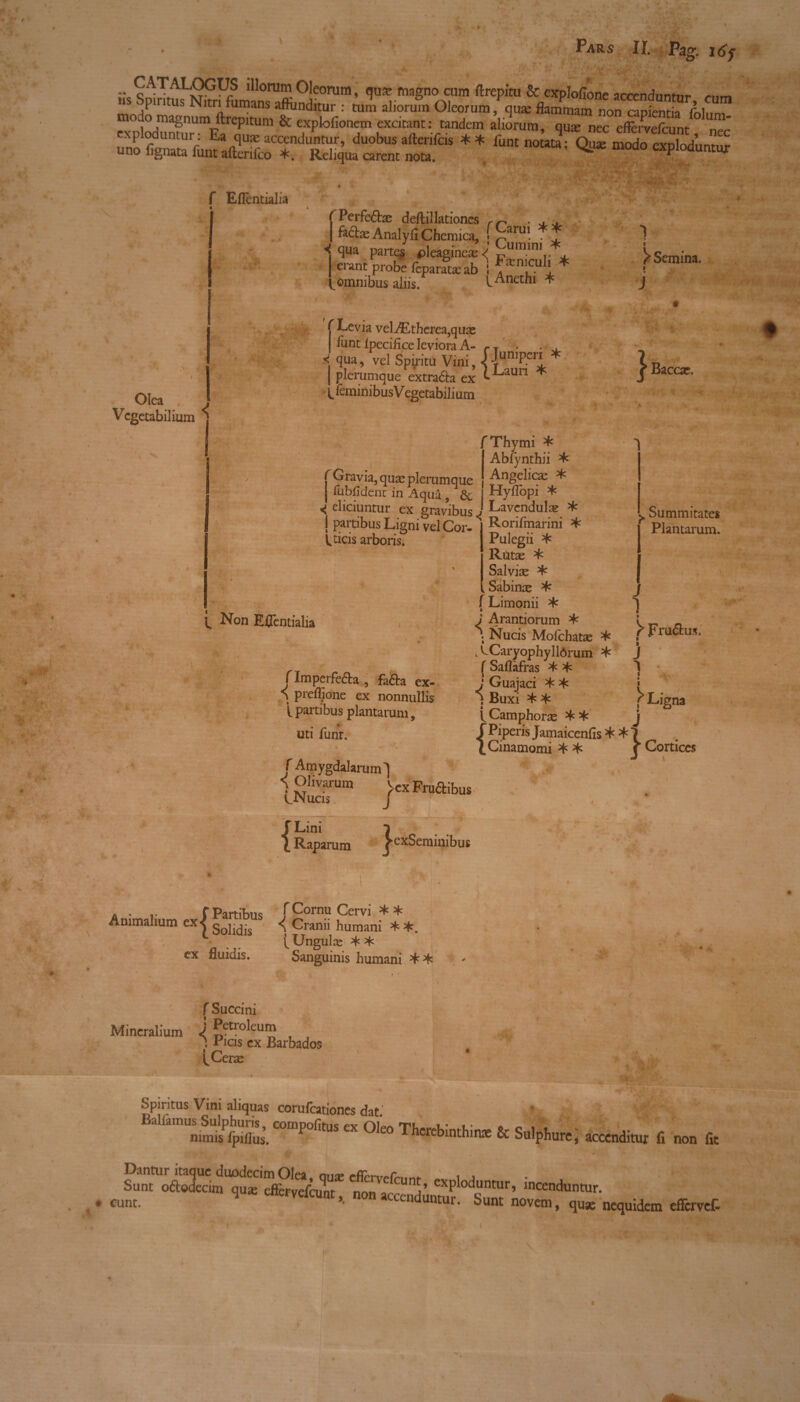 PARS II. Pag. 165
CATALOGUS illorum Oleorum, quæ magno cum ſtrepitu & exploſione accenduntur, cum
iis Spiritus Nitri fumans affunditur : tum aliorum Oleorum, quæ flammam non capientia ſolum-
modo magnum ſtrepitum & exploſionem excitant: tandem aliorum, quæ nec efferveſcunt, nec
exploduntur: Ea quæ accenduntur, duobus aſteriſcis * * ſunt notata; Quæ modo exploduntur
uno ſignata ſunt aſteriſco *. Reliqua carent nota.
Olea
Vegetabilium
Eſſentialia
Perfectæ deſtillationes
factæ Analyſi Chemica,
qua partes oleagineæ
erant probe ſeparatæ ab
omnibus aliis.
Carui * *
Cumini *
Fæniculi *
Anethi *
Semina.
Levia vel Ætherea,quæ
ſunt ſpecifice leviora A-
qua, vel Spiritu Vini,
plerumque extracta ex
ſeminibusVegetabilium
Juniperi *
Lauri *
Baccæ.
Gravia, quæ plerumque
ſubſident in Aquâ, &
eliciuntur ex gravibus
partibus Ligni vel Cor-
ticis arboris.
Thymi *
Abſynthii *
Angelicæ *
Hyſſopi *
Lavendulæ *
Roriſmarini *
Pulegii *
Rutæ *
Salviæ *
Sabinæ *
Summitates
Plantarum.
Limonii *
Arantiorum *
Nucis Moſchatæ *
Caryophyllôrum *
Fructus.
Saſſafras * *
Guajaci * *
Buxi * *
Camphoræ * *
Ligna
Piperis Jamaicenſis * *
Cinamomi * *
Cortices
Non Eſſentialia
Imperfecta, facta ex-
preſſione ex nonnullis
partibus plantarum,
uti ſunt.
Amygdalarum
Olivarum
Nucis
ex Fructibus
Lini
Raparum
exSeminibus
Animalium ex
Partibus
Solidis
Cornu Cervi * *
Cranii humani * *.
Ungulæ * *
ex fluidis.
Sanguinis humani * *
Mineralium
Succini
Petroleum
Picis ex Barbados
Ceræ
Spiritus Vini aliquas coruſcationes dat.
Balſamus Sulphuris, compoſitus ex Oleo Therebinthinæ & Sulphure; accenditur ſi non ſit
nimis ſpiſſus.
Dantur itaque duodecim Olea, quæ efferveſcunt, exploduntur, incenduntur.
Sunt octodecim quæ efferveſcunt, non accenduntur. Sunt novem, quæ nequidem efferveſ-
cunt.